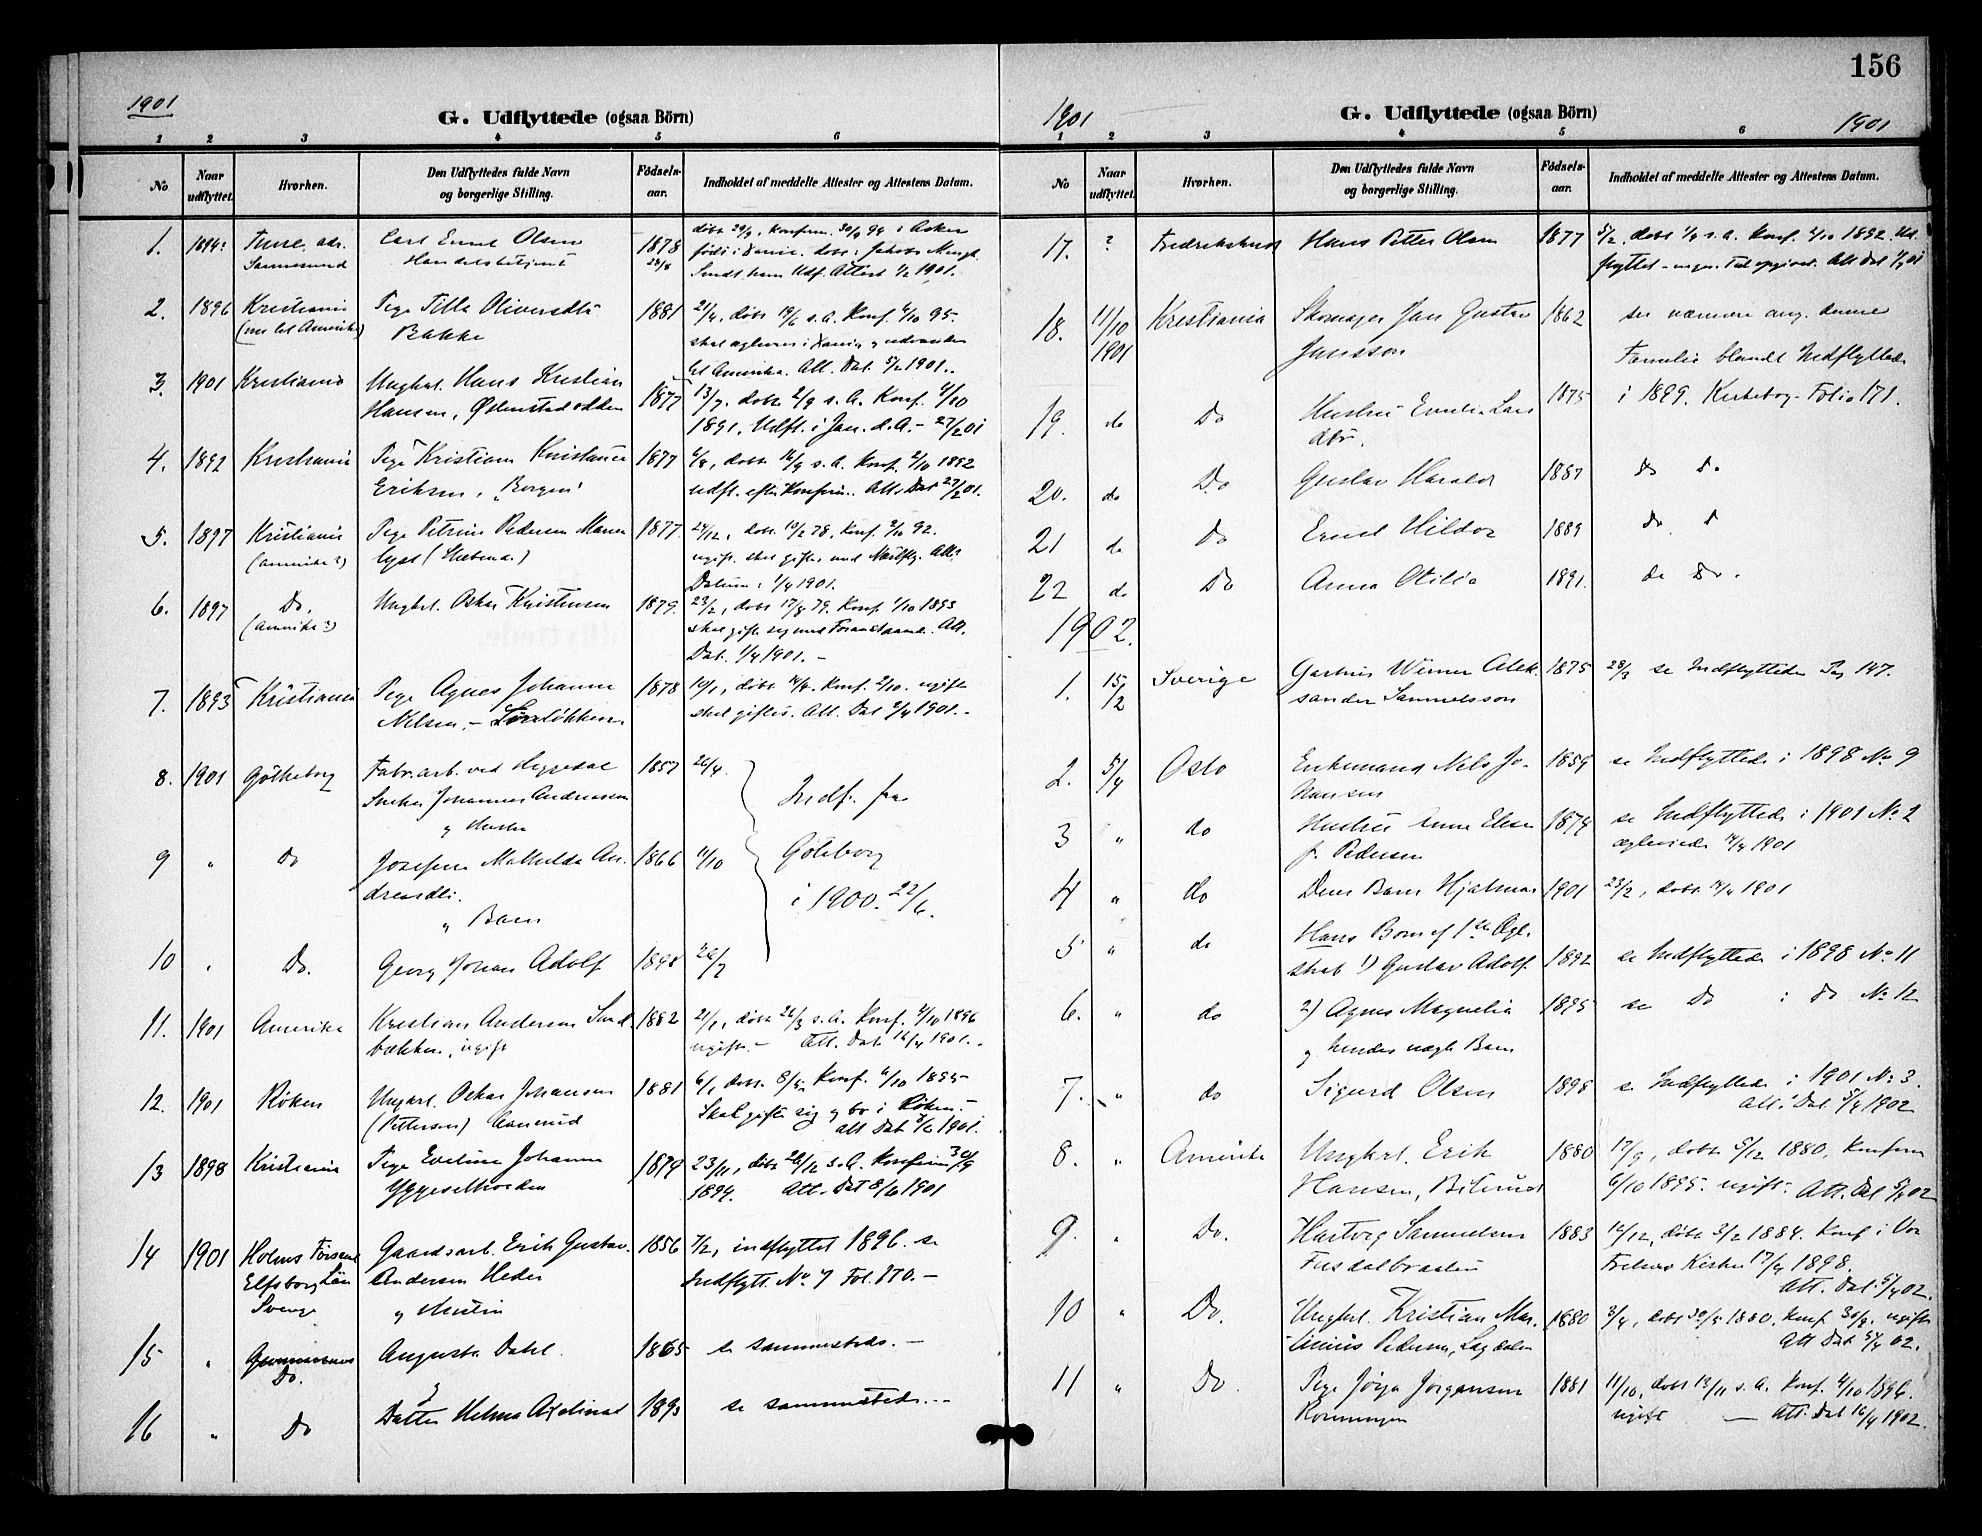 156
1901
G. Udflyttede (ogsaa Börn)
1 2 3 4 5 6
No
Naar udflyttet.
Hvorhen.
Den Udflyttedes fulde Navn og borgerlige Stilling.
Fødselsaar.
Indholdet af meddelte Attester og Attestens Datum.
1. 1894? Tune, adr. Carl Emil Olsen 1878 døbt 29/9, Konfirm. 30/9 94 i Asker
Sannesund Handelsbetjent 28/8 født i Xania. døbt i Jakobs Mengh.
Sendt ham Udf. Attest 1/2 1901.
2. 1896 Kristiania Pige Tilla Oliversdtr 1881 21/4. døbt 19/6 s. A. Konf. 4/10 95
Bakke skal i Xania og
til Amerika. Att. Dat. 5/2 1901.
3. 1901 Kristiania Ungkrl. Hans Kristian 1877 13/7. døbt 2/9 s. A. Konf. 4/10
Hansen, Østenstadodden 1891. Udfl. i Jan. d. A. - 27/2 01
4. 1892 Kristiania Pige Kristiane 1877 døbt 16/9 s. A. Konf. 2/10 1892
Eriksen, "Borgen" udfl. efter Konfirm. Att. Dat 27/2 01.
5. 1897 Kristiania Pige Petrine Pedersen 1877. 24/12, døbt 10/2 78, Konf. 2/10 92.
(Amerika?) ugift. skal giftes med Att.
Datum: 1/4 1901.
6. 1897 Do. Ungkrl. Oskar Kristensen 1879. 23/2, døbt 17/8 79. Konf. 1/10 1893
(Amerika?) skal gifte sig med Foranstaaende. Att.
Dat. 1/4 1901. -
7. 1893 Kristiania Pige Agnes Johanne 1878 19/1, døbt 14/4. Konf. 2/10. ugift
Nilsen, - skal giftes. Att. Dat 2/4 1901. -
8. 1901 Götheborg Fabr. arb. ved Heggedal 1857 26/4.
Johannes Andreasson Indf. fra
og Hustru
9 " Do Josefine Mathilda An- 1866 11/10 Göteborg
dreasdtr. i 1900. 22/6.
" Barn
10 " Do. Georg Johan Adolf 1898 26/7
11. 1901 Amerika Kristian Andersen 1882 21/1, døbt 26/3 s. A. Konf. 4/10 1896
bækken, ugift ugift. - Att. Dat 16/4 1901. -
12. 1901 Røken Ungkrl. Oskar Johansen 1881 6/1, døbt. 8/5. Konf. 6/10 1895
(Pettersen) Aamrud Skal gifte sig og bo i Røken. -
Att Dat 1901.
13 1898 Kristiania Pige Eveline Johanne 1879 23/11, døbt 26/12 s. A. Konfirm. 30/9
Yggesethveden 1894. Att. Dat 8/6 1901
14 1901 Holms Gaardsarb. Erik Gustav 1856 7/2, indflyttet 1896. se
Elfsborg Län Andersen Heder Indflytt. No. 7 Fol. 170. -
Sverige og Hustru
15 " Do. Augusta Dahl. 1865 se sammesteds. -
16 " Do Datter Helma 1893 se sammesteds. -
1901
G. Udflyttede (ogsaa Börn)
1901
1 2 3 4 5 6
No
Naar udflyttet.
Hvorhen.
Den Udflyttedes fulde Navn og borgerlige Stilling.
Fødselsaar.
Indholdet af meddelte Attester og Attestens Datum.
17. ? Fredrikshald Hans Petter Olsen 1877 5/2, døbt 1/4 s. A. Konf. 2/10 1892. Ud-
flyttet - Tid opgivet. Att. Dat 01
18. 11/10 1901 Kristiania Skomager Jan Gustav 1862 se nærmere ang. denne
Jansson Familie blandt Indflyttede
19. do Do Hustru Emili Lars 1875 i 1899. Kirkebog-Folio 171.
dtr.
20. do Do Gustav Harald 1887 do do
21 do Do Ernst Hildor 1889 do. do
22 do Do Anna Otilie 1891. do Do.
1902.
1. 15/2 Sverige Werner Alek- 1875 28/3 se Indflyttede Pag 147.
sander Samuelsson
2. 5/4 Oslo Enkemand Nils Jo- 1859 se Indflyttede i 1898 No. 9
hansen
3 " do Hustru Anne Elise 1874 se Indflyttede i 1901 No 2
f. Pedersen ægteviede 14/4 1901
4 " do Deres Barn Hjalmar 1901 23/2, døbt 14/4 1901
5 " do Hans Børn af 1ste Ægte-
skab 1) Gustav Adolf 1892 se Indflyttede i 1898 No 11
6. " do 2) Agnes Magnelia 1895 se Do i do No 12
og hendes uægte Barn
7. " do Sigurd Olsen 1898 se Indflyttede i 1901 No 3.
Att. Dat. 5/4 1902
8. " Amerika Ungkrl. Erik 1880 17/9, døbt 5/12 1880, Konfirm
Hansen, Bilerud 6/10 1895. ugift. Att. Dat 5/4 02
9. " Do. Hartvig Samuelsen 1883 16/12, døbt 3/2 1884. Konf i Vor
Fusdalbraaten Frelsers Kirke 17/4 1898.
Att. Dat. 5/4 02.
10 " Do. Ungkrl. Kristian Mar- 1880 3/4, døbt 30/5 1880, Konf 30/9. ugift
tinius Pedersen, Løgdalen Att Dat 5/4 02.
11 " Do. Pige Jørga Jørgensen 1881 11/10, døbt 13/11 s. A. Konf. 4/10 1896.
Ronningen ugift — Att. Dat 16/4 1902.